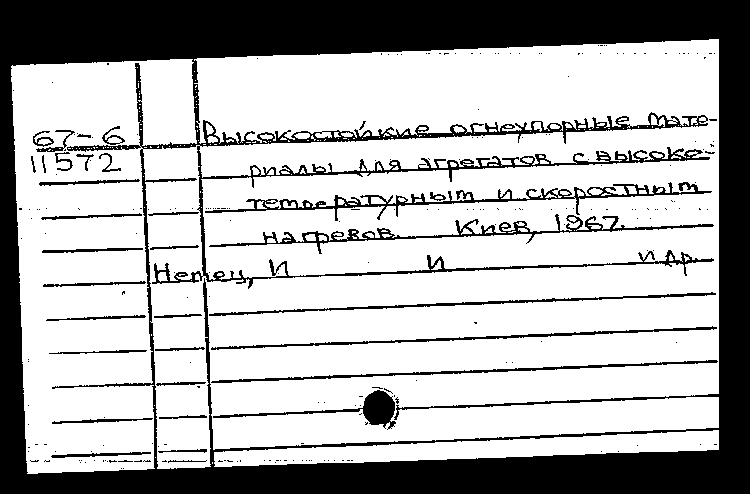 67-6 Высокостойкие огнеупорные мате-
11572 риалы для агрегатов с высоко-
температурным и скоростным
нагревов. Киев, 1967.
Немец, И И и др.